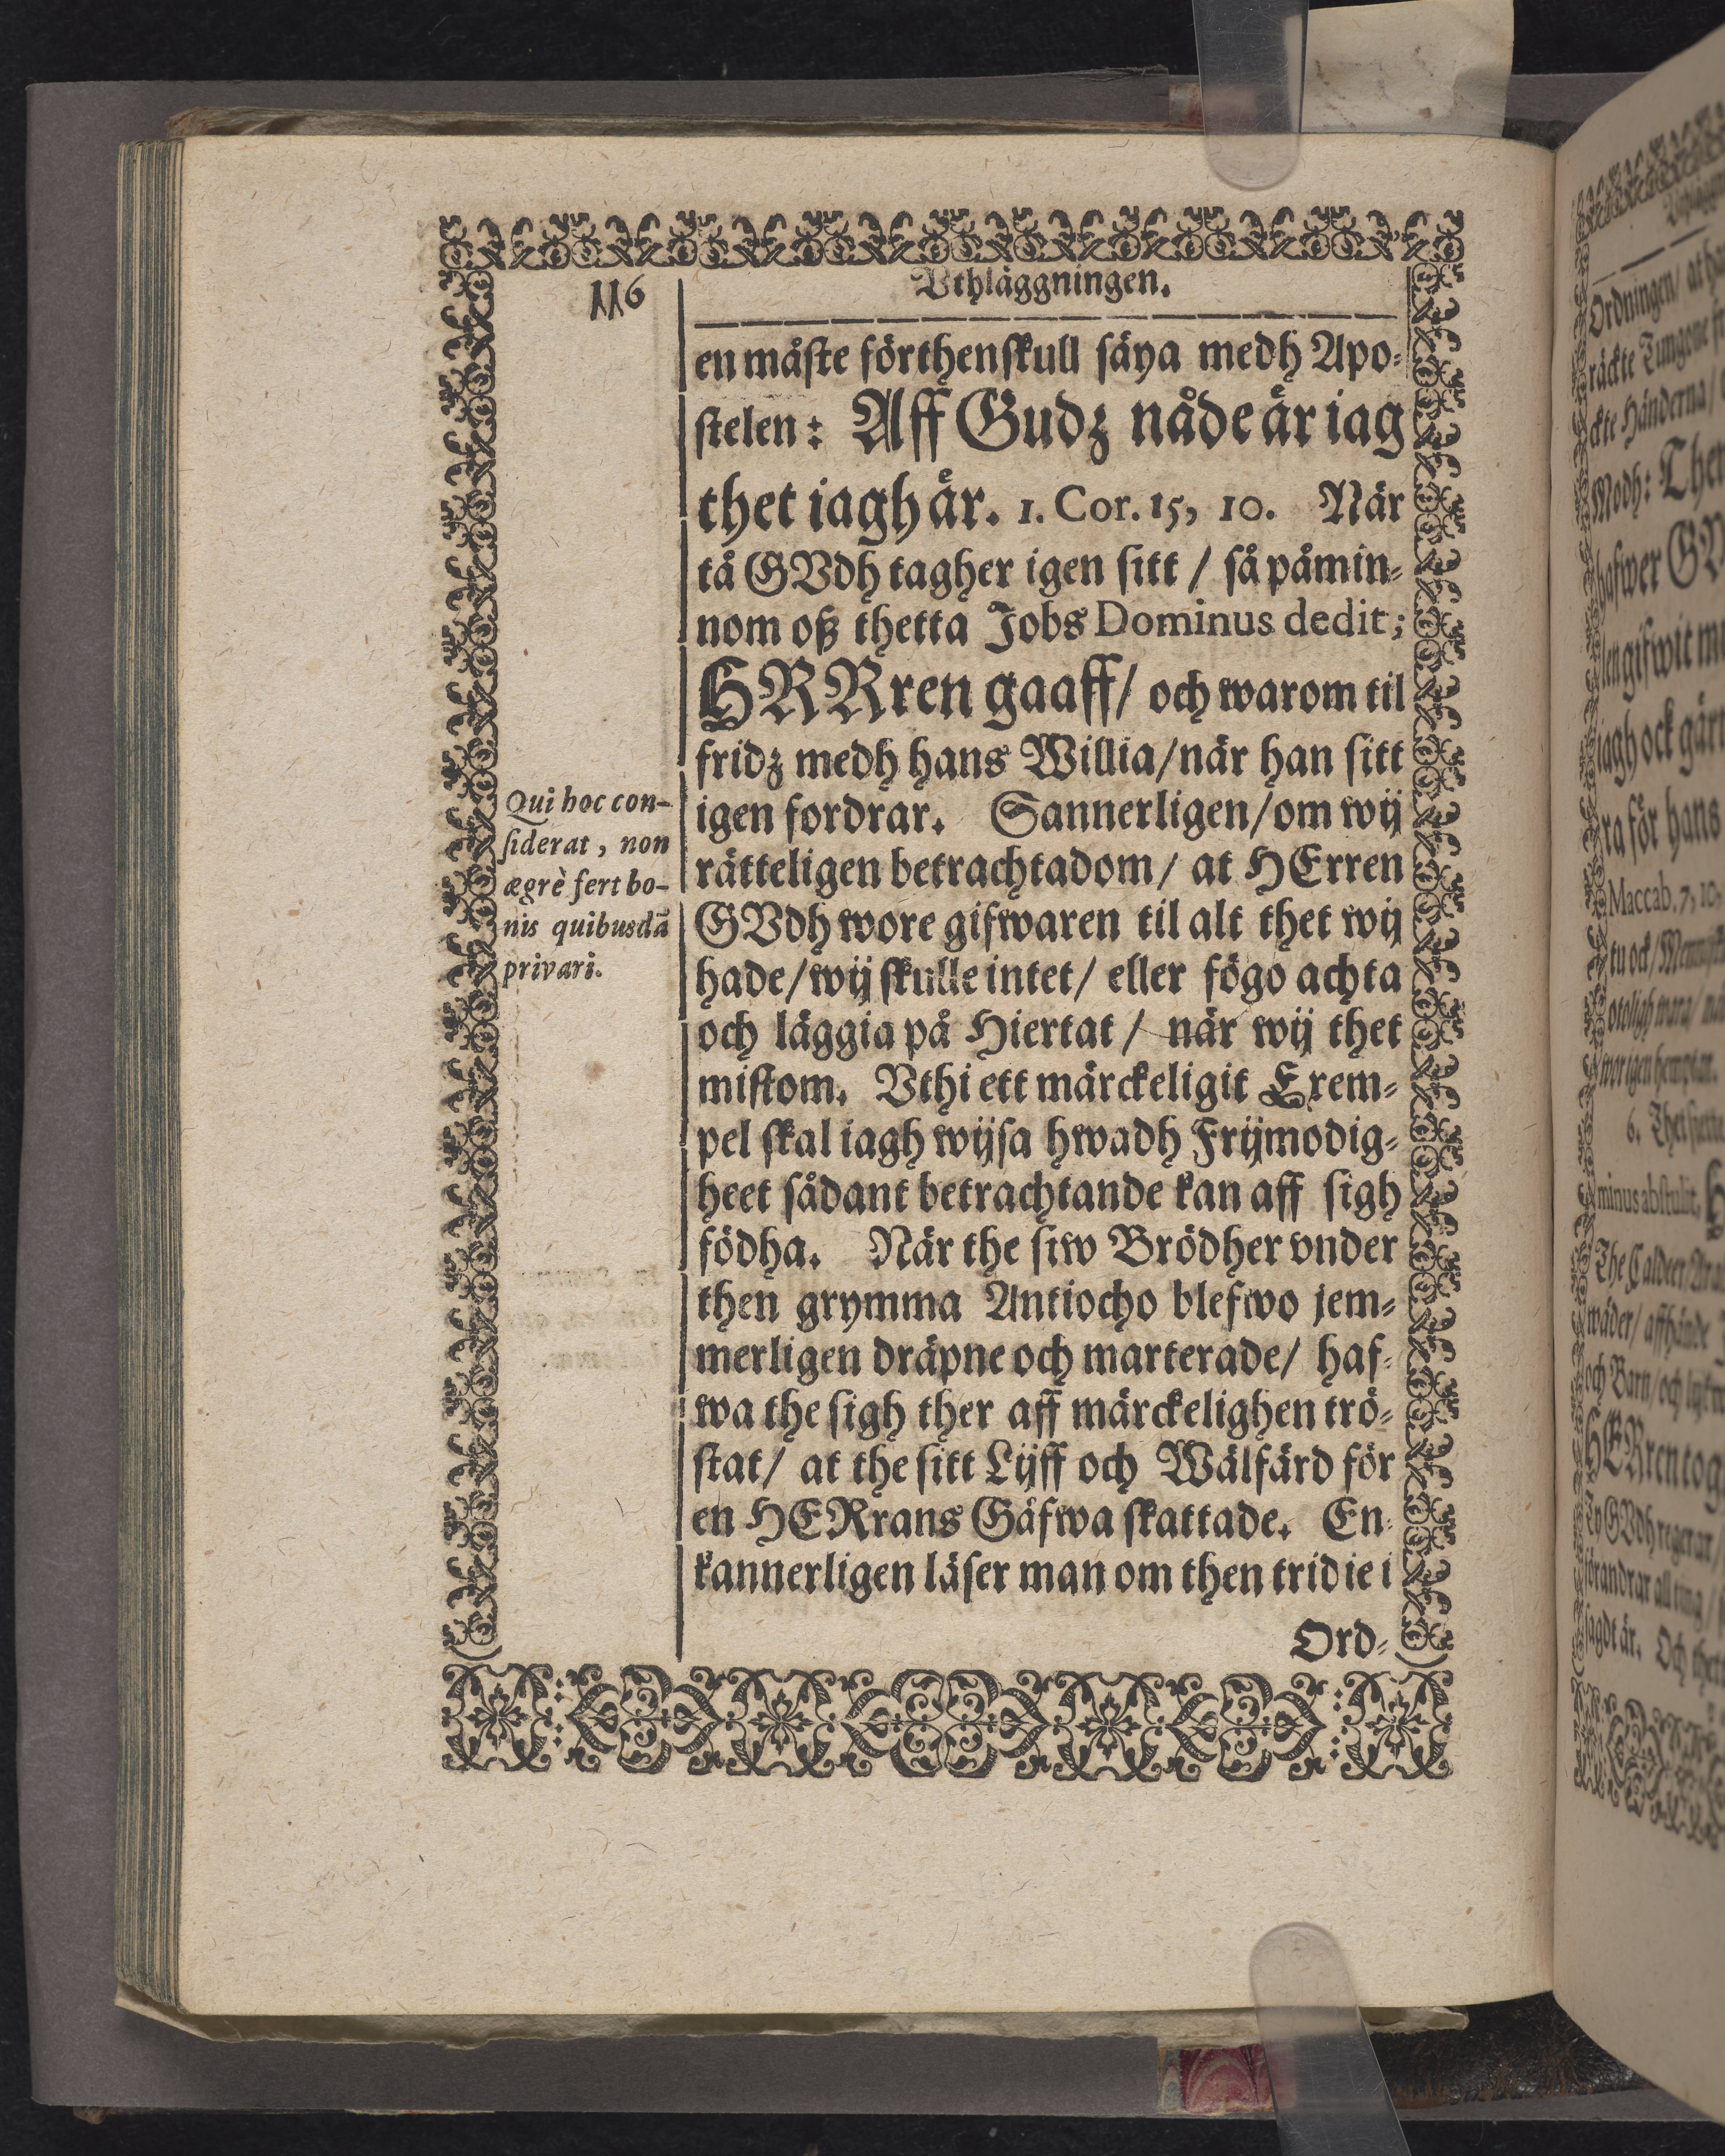 116
Vthläggningen.
en måste förthenskull säya medh Apo-
stelen: Aff Gudz nåde är iag
thet iagh är. 1. Cor. 15, 10. När
tå GVdh tagher igen sitt / så påmin-
nom oß thetta Jobs Dominus dedit;
HRRren gaaff / och warom til
fridz medh hans Willia / när han sitt
igen fordrar. Sannerligen / om wij
rätteligen betrachtadom / at HErren
GVdh wore gifwaren til alt thet wij
hade / wij skulle intet / eller fögo achta
och läggia på Hiertat / när wij thet
mistom. Vthi ett märckeligit Exem-
pel skal iagh wijsa hwadh Frijmodig-
heet sådant betrachtande kan aff sigh
födha. När the siw Brödher vnder
then grymma Antiocho blefwo jem-
merligen dräpne och marterade / haf-
wa the sigh ther aff märckelighen trö-
stat / at the sitt Lijff och Wälfärd för
en HERrans Gäfwa skattade. En-
kannerligen läser man om then tridie i
Ord-
Qui hoc con-
siderat, non
ægrè fert bo-
nis quibusdā
privari.
Ordningen / at
räckte Tungone
Händerna /
Medh: Then
hafwer
iagh ock gärn
ra för hans
Maccab. 7, 10.
tu ock /
6.
minus abstulit,
The Caldeer
och Barn / och
HERren tog
förandrar all ting /
sagdt är. Och